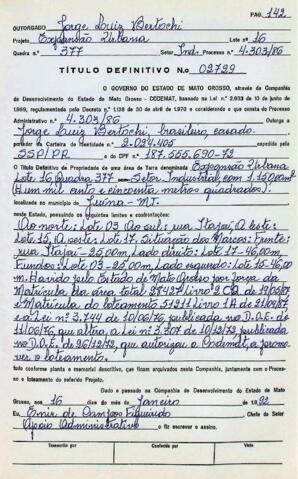 PAG. 142
OUTORGADO Jorge Luiz Bertochi
Projeto Expansão Urbana Lote nº 16
Quadra n.º 377 Setor Ind. Processo n.º 4.303/86
TÍTULO DEFINITIVO N.o 02729
O GOVERNO DO ESTADO DE MATO GROSSO, através da Companhia
de Desenvolvimento do Estado de Mato Grosso - CODEMAT, baseado na Lei N.º 2.933 de 10 de junho de
1969, regulamentada pelo Decreto N.º 1.138 de 30 de abril de 1970 e considerando o que consta do Processo
Administrativo n.º 4.303/86 Outorga a
Jorge Luiz Bertochi, brasileiro, casado.
portador da Carteira de Identidade n.º 2.024.405 expedida pelo
SSP/PR e do CPF n.º 187.555.690-72
o Título Definitivo de Propriedade de uma área de Terra denominada Expansão Urbana
Lote 16 Quadra 377 - Setor Industrial com 1.150,00m²
(Hum mil cento e cinquenta metros quadrados).
localizada no município de Juína - MT.
neste Estado, possuindo os seguintes limites e confrontações:
Ao norte: Lote 03, Ao sul: rua Itajaí, A leste:
Lote 15, A oeste: Lote 17. Situação dos Marcos: Frente:
rua Itajaí - 25,00m, Lado direito: Lote 17 - 46,00m
Fundos: Lote 03 - 25,00m, Lado esquerdo: Lote 15 - 46,00
m. Havido pelo Estado de Mato Grosso por força da
Matrícula da área total 27437 livro 2
e Matrícula do loteamento 51211 livro 1A de 21/09/87
e a Lei nº 3.744 de 10/06/76, publicada no D.O.E. de
11/06/76, que altera a Lei nº 3.307 de 10/12/72, publicada
no D.O.E. de 26/12/72, que autorizou a Codemat a promo-
ver o loteamento.
tudo conforme planta e memorial descritivo, que ficam arquivados nesta Companhia, juntamente com o Proces-
so e loteamento do referido Projeto.
Dado e passado na Companhia de Desenvolvimento do Estado de Mato
Grosso, aos 16 dias do mês de Janeiro de 1992
Eu, Enir de Campos Figueiredo Chefe do Setor
Apoio Administrativo o fiz escrever e assino.
Transcrito por Conferido por Visto